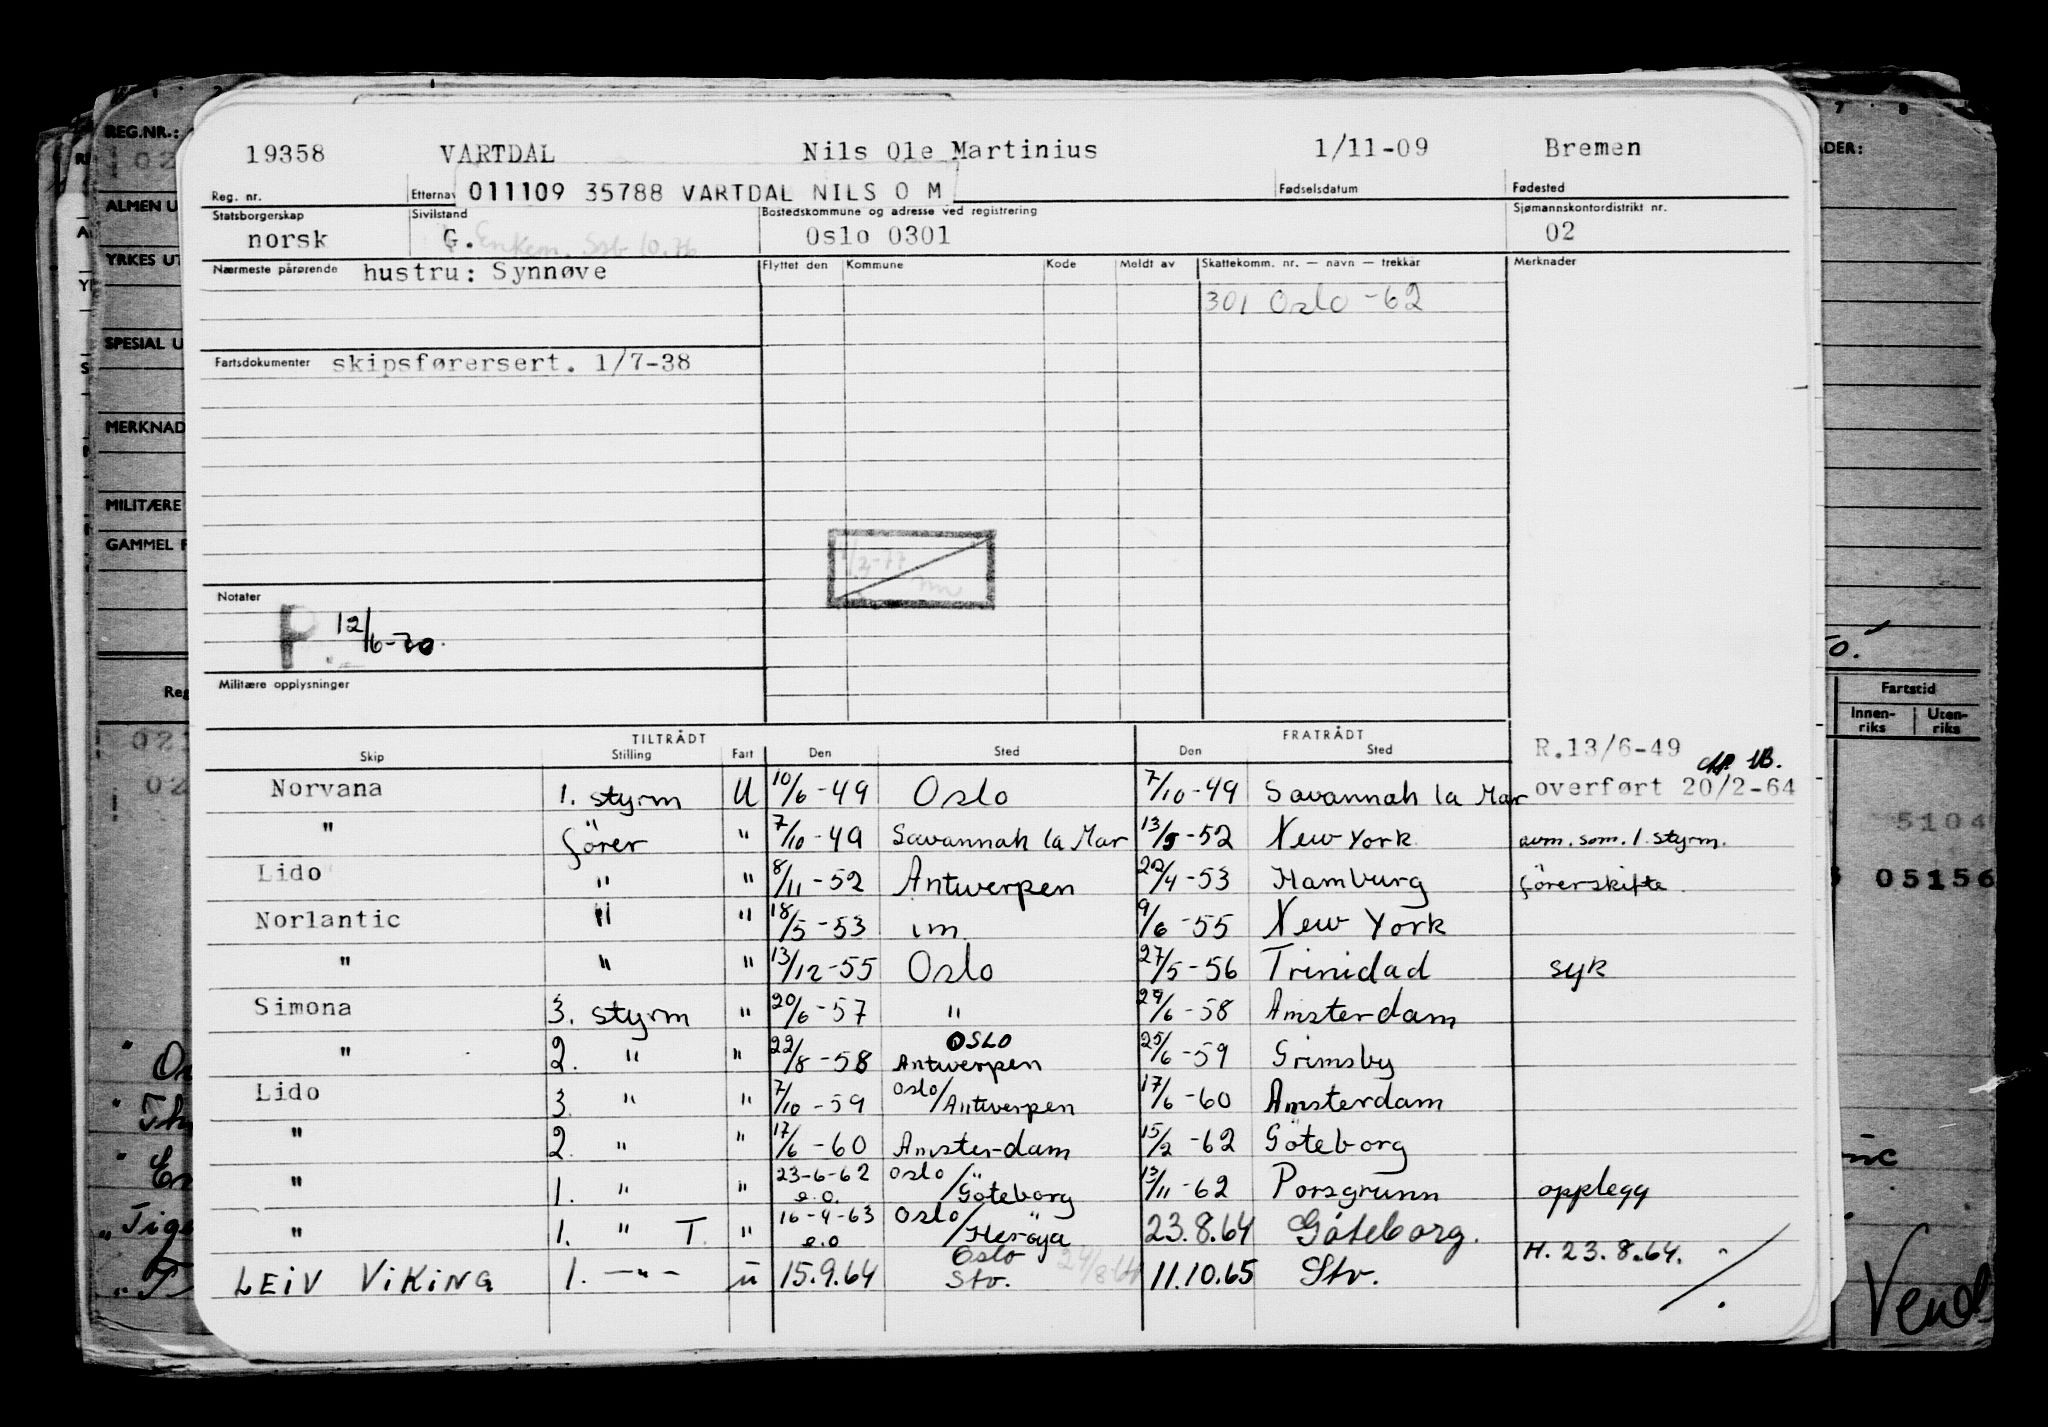 19358 VARTDAL Nils Ole Martinius 1/11-09 Bremen
Reg. nr. Etternav 011109 35788 VARTDAL NILS O M Fødselsdatum Fødested
Statsborgerskap Sivilstand Bostedskommune og adresse ved registrering Sjømannskontordistrikt nr.
norsk G. Enkem. Ssb 10.76 Oslo 0301 02
Nærmeste pårørende hustru: Synnøve Flyttet den Kommune Kode Meldt av Skattekomm. nr. — navn — trekkår Merknader
301 Oslo -62
Fartsdokumenter skipsførersert. 1/7-38
Notater
P 12/6-70.
Militære opplysninger
TILTRÅDT FRATRÅDT
Skip Stilling Fart Den Sted Den Sted R.13/6-49
Norvana 1. styrm U 10/6-49 Oslo 7/10-49 Savannah la Mar overført 20/2-64
" förer " 7/10-49 Savannah la Mar 13/5-52 New York avm. som. 1. styrm.
Lido " " 8/11-52 Antwerpen 22/4-53 Hamburg förerskifte
Norlantic " " 18/5-53 im 9/6-55 New York
" " " 13/12-55 Oslo 27/5-56 Trinidad syk
Simona 3. styrm " 20/6-57 " 27/6-58 Amsterdam
" 2. " " 22/8-58 OSLO Antwerpen 25/6-59 Grimsby
Lido 3 " " 7/10-59 Oslo/Antwerpen 17/6-60 Amsterdam
" 2. " " 17/6-60 Amsterdam 15/2-62 Göteborg
" 1. " " 23-6-62 e.o. Oslo/Göteborg 13/11-62 Porsgrunn opplegg
" 1. " T. " 16-4-63 e.o Oslo/Heröya 23.8.64 Göteborg.
H. 23.8.64.
LEIV VIKING 1. -"- u 15.9.64 Oslo Stv. 24/8-64 11.10.65 Stv.
REG.NR.:
ALMEN U
YRKES UT
SPESIAL U
MERKNAD
MILITÆRE
GAMMEL F
Reg
Fartstid
Innen-riks Uten-riks
5104
05156
Vend